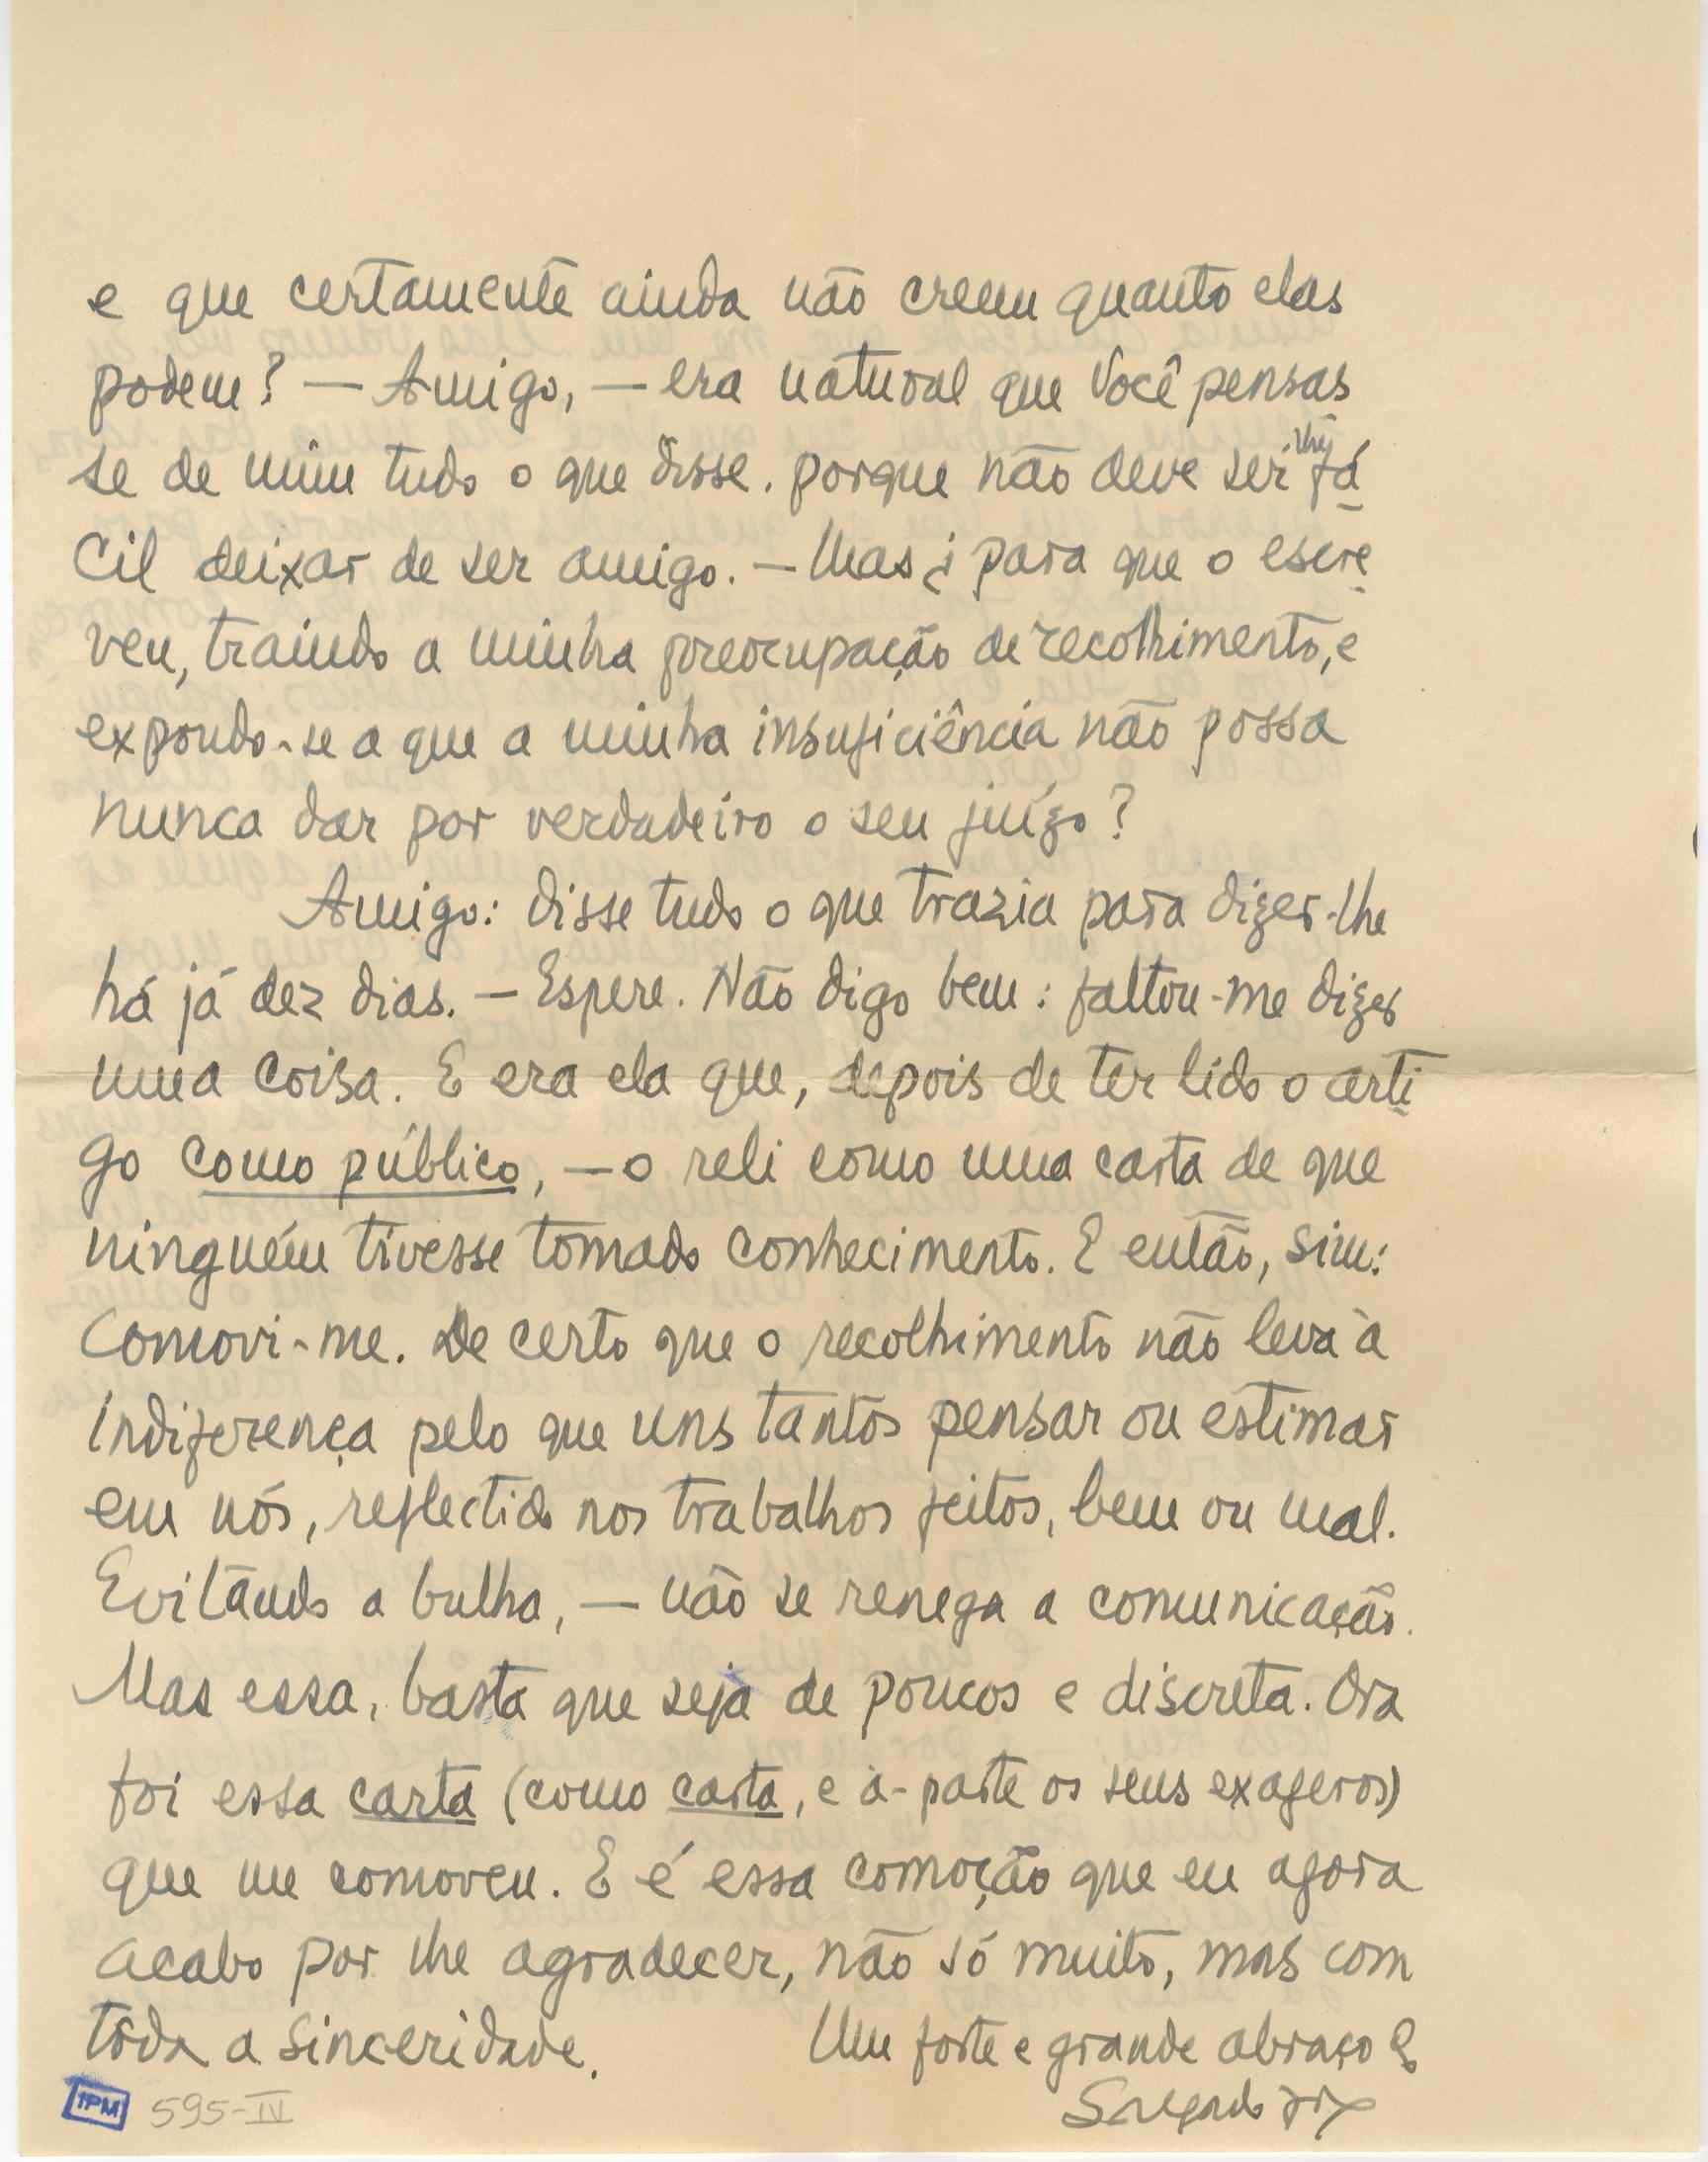 e que certamente ainda não creem quanto elas
podem? — Amigo, — era natural que Você pensas
se de mim tudo o que disse. porque não deve ser-lhe fá
cil deixar de ser amigo. — Mas ¿ para que o escre
veu, traindo a minha preocupação de recolhimento, e
expondo-se a que a minha insuficiência não possa
nunca dar por verdadeiro o seu juízo?
Amigo: disse tudo o que trazia para dizer-lhe
há já dez dias. — Espere. Não digo bem: faltou-me dizer
uma coisa. E era ela que, depois de ter lido o arti
go como público, — o reli como uma carta de que
ninguém tivesse tomado conhecimento. E então, sim:
Comovi-me. De certo que o recolhimento não leva à
indiferença pelo que uns tantos pensar ou estimar
em nós, reflectido nos trabalhos feitos, bem ou mal.
Evitando a bulha, — não se renega a comunicação.
Mas essa, basta que seja de poucos e discreta. Ora
foi essa carta (como carta, e à-parte os seus exageros)
que me comoveu. E é essa comoção que eu agora
acabo por lhe agradecer, não só muito, mas com
tôda a sinceridade. Um forte e grande abraço
Salgado Jr
IPM 595-IV